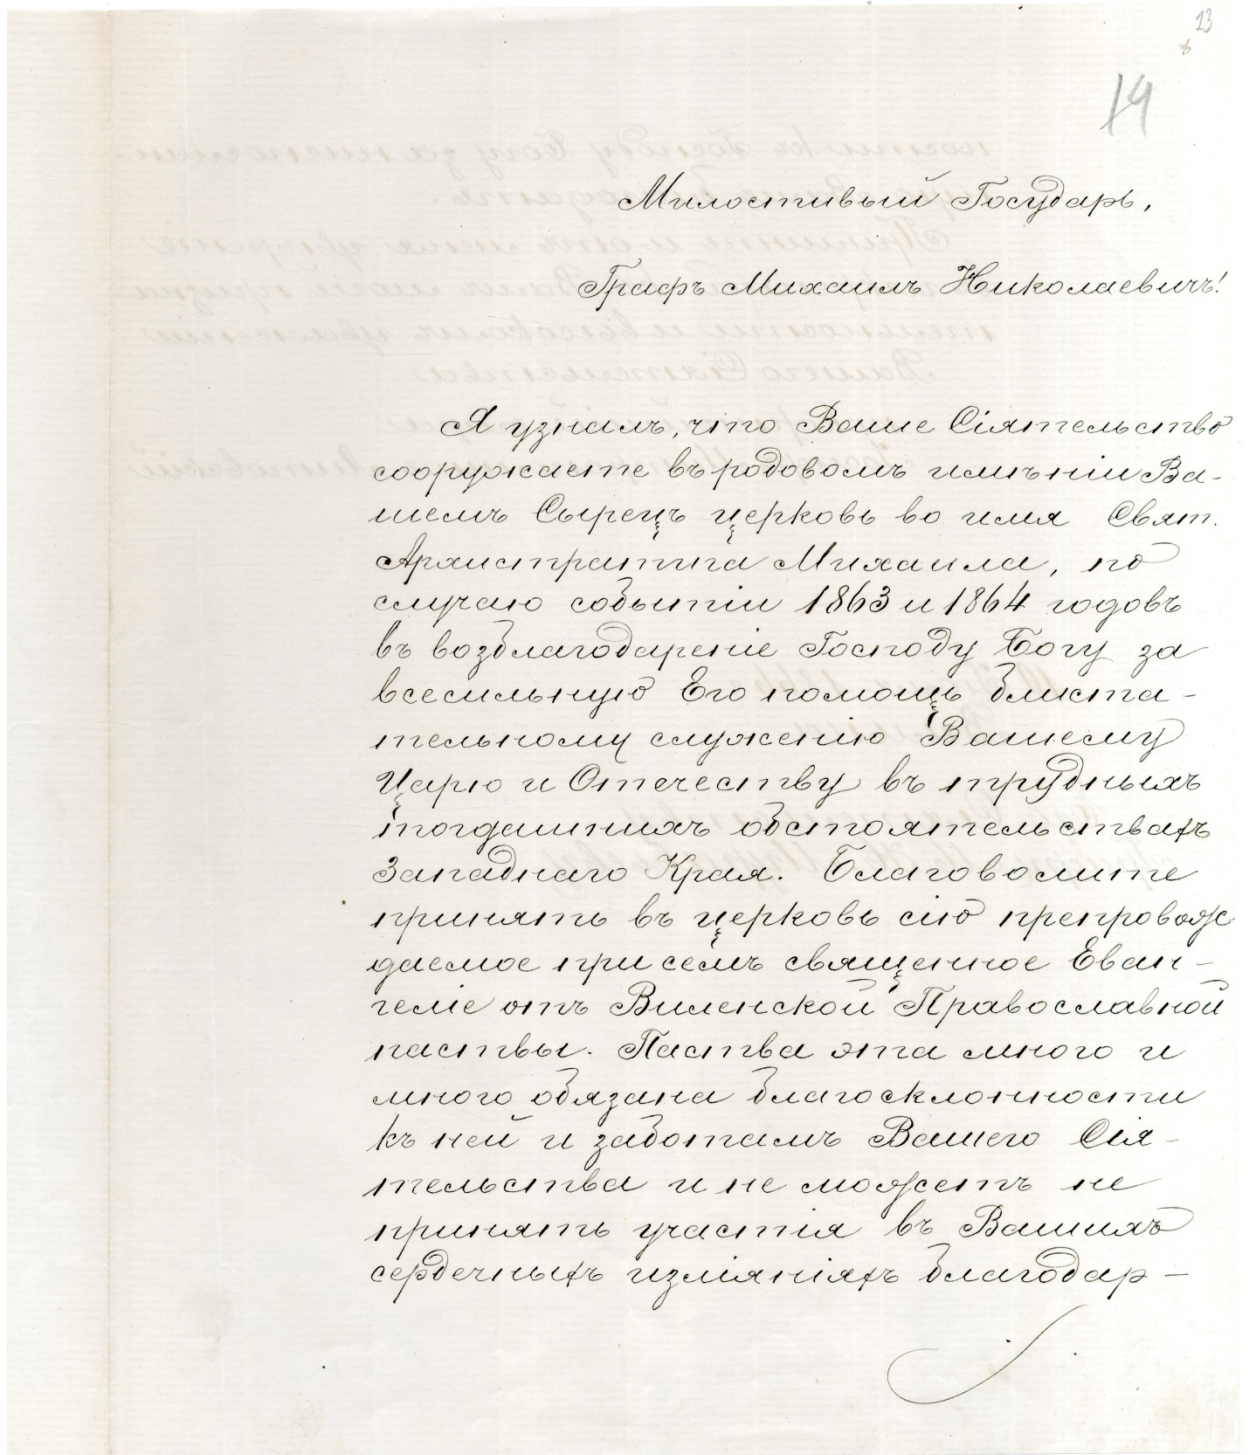 13
19
Милостивый Государь,
Графъ Михаилъ Николаевичъ!
Я узналъ, что Ваше Сіятельство
сооружаете въ родовомъ имѣніи Ва-
шемъ Сырецъ церковь во имя Свят.
Архистратига Михаила, по
случаю событіи 1863 и 1864 годовъ
въ возблагодареніе Господу Богу за
всесильную Его помощь блиста-
тельному служенію Вашему
Царю и Отечеству въ трудныхъ
тогдашнихъ обстоятельствахъ
Западнаго Края. Благоволите
принять въ церковь сію препровож
даемое при семъ священное Еван-
геліе отъ Виленской Православной
паствы. Паства эта много и
много обязана благосклонности
къ ней и заботамъ Вашего Сія-
тельства и не можетъ не
принять участія въ Вашихъ
сердечныхъ изліяніяхъ благодар-